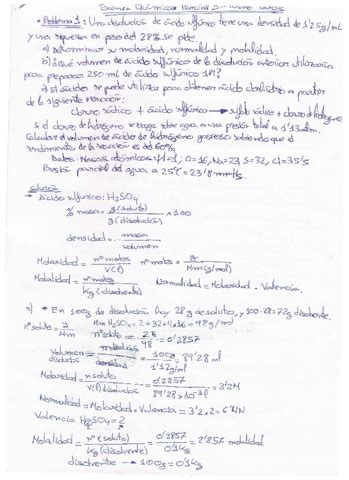 Examen Química Parcial 2 -
• Problema 1: Una disolución de ácido sulfúrico tiene una densidad de 1'25g/ml
y una riqueza en peso del 28%. Se pide
a) Determinar su molaridad, normalidad y molalidad.
b) ¿Qué volumen de ácido sulfúrico de la disolución anterior utilizaría
para preparar 250 ml de ácido sulfúrico 1M?
c) El ácido se puede utilizar para obtener ácido clorhídrico a partir
de la siguiente reacción:
cloruro sódico + ácido sulfúrico → sulfato sódico + cloruro de hidrógeno
si el cloruro de hidrógeno se recoge sobre agua a una presión total a 1'13 atm.
Calcular el volumen de ácido de hidrógeno gaseoso sabiendo que el
rendimiento de la reacción es del 60%.
Datos: Masas atómicas: H=1, O=16, Na=23, S=32, Cl=35'5
Presión parcial del agua a 25ºC = 23'8 mmHg
Solución
→ Ácido sulfúrico: H2SO4
% masa = g(soluto) / g(disolución) x 100
densidad = masa / volumen
Molaridad = nº moles / V(l) nº moles = g / Mm(g/mol)
Molalidad = nº moles / Kg (disolvente) Normalidad = Molaridad · Valencia.
a) * En 100g de disolución hay 28g de soluto, y 100-28=72g disolvente.
nº soluto = g / Mm Mm H2SO4 = 2+32+4x16 = 98g/mol
nº soluto = 28 / 98 = 0'2857
Volumen disolución = = 100g / 1'12g/ml = 89'28 ml
Molaridad = n soluto / V(l) disolución = 0'2857 / 89'28 x 10^-3 l = 3'2M
Normalidad = Molaridad x Valencia = 3'2 x 2 = 6'4N
Valencia H2SO4 = 2
Molalidad = nº (soluto) / Kg (disolvente) = 0'2857 / 0'1Kg = 2'857 molalidad
disolvente → 100g = 0'1Kg